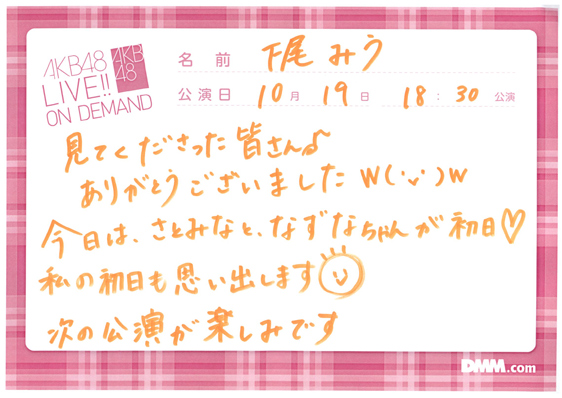 AKB48
LIVE!!
ON DEMAND
AKB
48
名前 下尾みう
公演日 10月 19日 18:30 公演
見てくださった皆さん♪
ありがとうございましたw(˙ᵕ˙)w
今日は、さとみなと、なずなちゃんが初日♡
私の初日も思い出します
次の公演が楽しみです
DMM.com